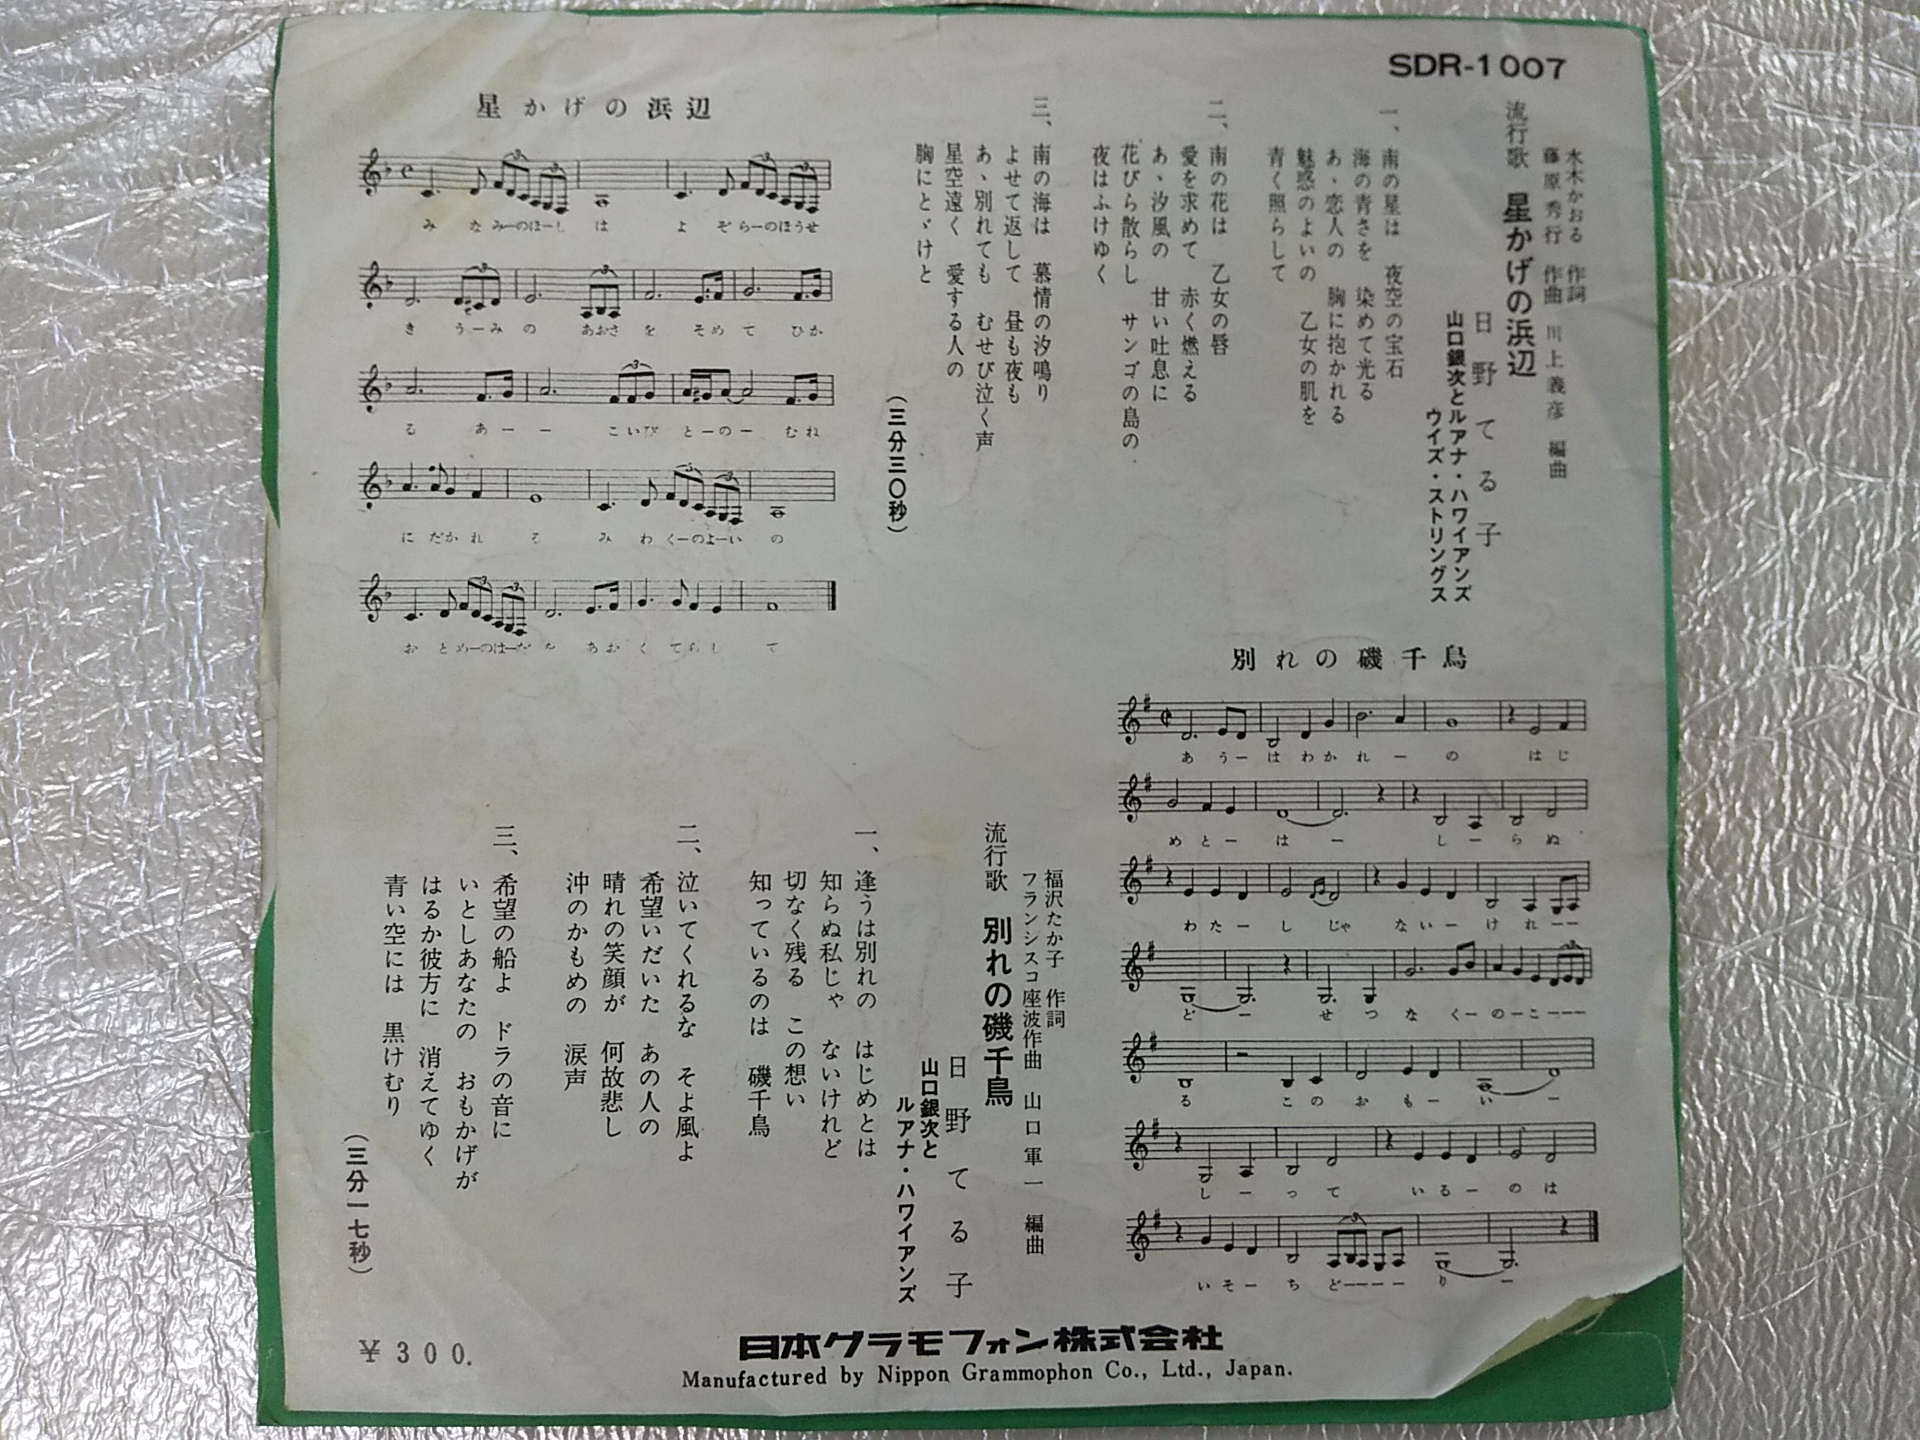 SDR-1007
水木かおる 作詞
藤原秀行 作曲 川上義彦 編曲
流行歌 星かげの浜辺
日野てる子
山口銀次とルアナ・ハワイアンズ
ウイズ・ストリングス
一、
南の星は 夜空の宝石
海の青さを 染めて光る
あゝ恋人の 胸に抱かれる
魅惑のよいの 乙女の肌を
青く照らして
二、
南の花は 乙女の唇
愛を求めて 赤く燃える
あゝ汐風の 甘い吐息に
花びら散らし サンゴの島の
夜はふけゆく
三、
南の海は 慕情の汐鳴り
よせて返して 昼も夜も
あゝ別れても むせび泣く声
星空遠く 愛する人の
胸にとゞけと
(三分三〇秒)
星かげの浜辺
み な みーのほーし は よ ぞらーのほうせ
き うーみ の あおさ を そめ て ひか
る あー ー こいび とーのー むね
に だか れ る み わ くーのよーい の
お と めーのはーだ を あお く てらし て
別れの磯千鳥
あ うー は わか れ ー の は じ
め とー は ー し ー ら ぬ
わ た ー し じゃ な い ー け れ ーー
ど ー せ つ な くー のーこーーー
る こ の お も ー い ー
し ー っ て い る ー の は
い そ ー ち どーーーー り ー
福沢たか子 作詞
フランシスコ座波作曲 山口軍一 編曲
流行歌 別れの磯千鳥
日野てる子
山口銀次と
ルアナ・ハワイアンズ
一、
逢うは別れの はじめとは
知らぬ私じゃ ないけれど
切なく残る この想い
知っているのは 磯千鳥
二、
泣いてくれるな そよ風よ
希望いだいた あの人の
晴れの笑顔が 何故悲し
沖のかもめの 涙声
三、
希望の船よ ドラの音に
いとしあなたの おもかげが
はるか彼方に 消えてゆく
青い空には 黒けむり
(三分一七秒)
¥300.
日本グラモフォン株式会社
Manufactured by Nippon Grammophon Co., Ltd., Japan.